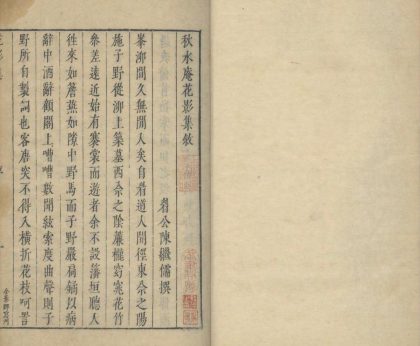 秋水庵花影集敘
眉公陳繼儒撰
峯泖間久無閒人矣自眉道人開徑東佘之陽
施子野從泖上築墓西佘之陰簾櫳窈窕花竹
參差遠近始有褰裳而遊者余不設藩垣聽人
徃來如蒼蕪如隙中野馬而子野嚴扃鐍以病
辭中酒辭顧閣上嘈嘈數聞絃索度曲聲則子
野所自製詞也客唐突不得入橫折花枝呵詈